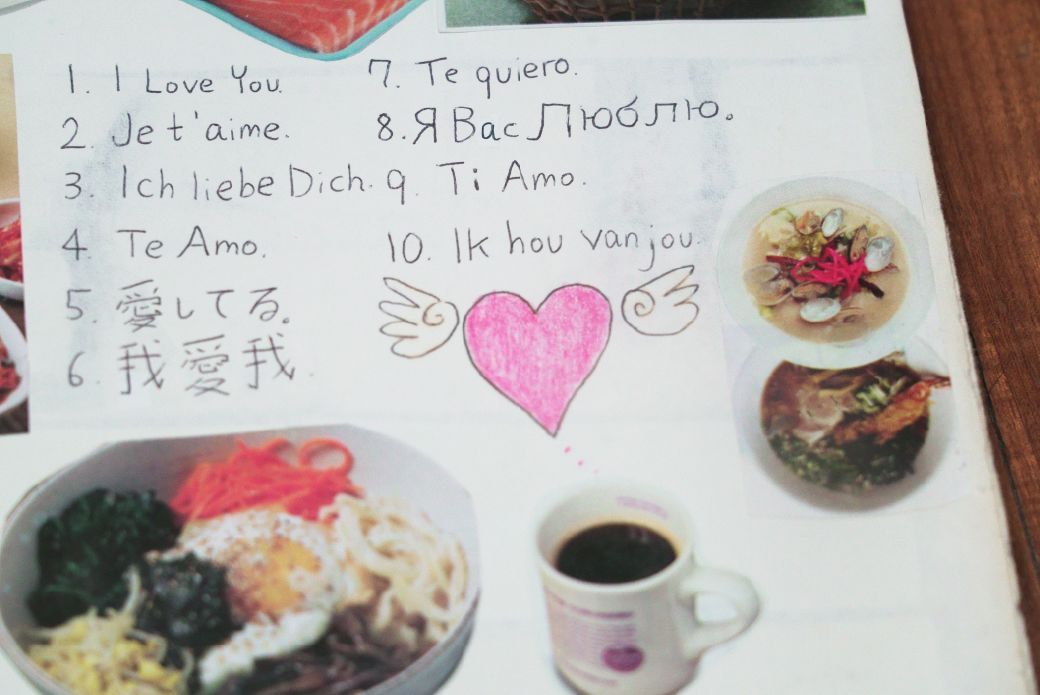 1. I Love You.
2. Je t'aime.
3. Ich liebe Dich.
4. Te Amo.
5. 愛してる。
6. 我愛我.
7. Te quiero.
8. Я Вас Люблю.
9. Ti Amo.
10. Ik hou van jou.